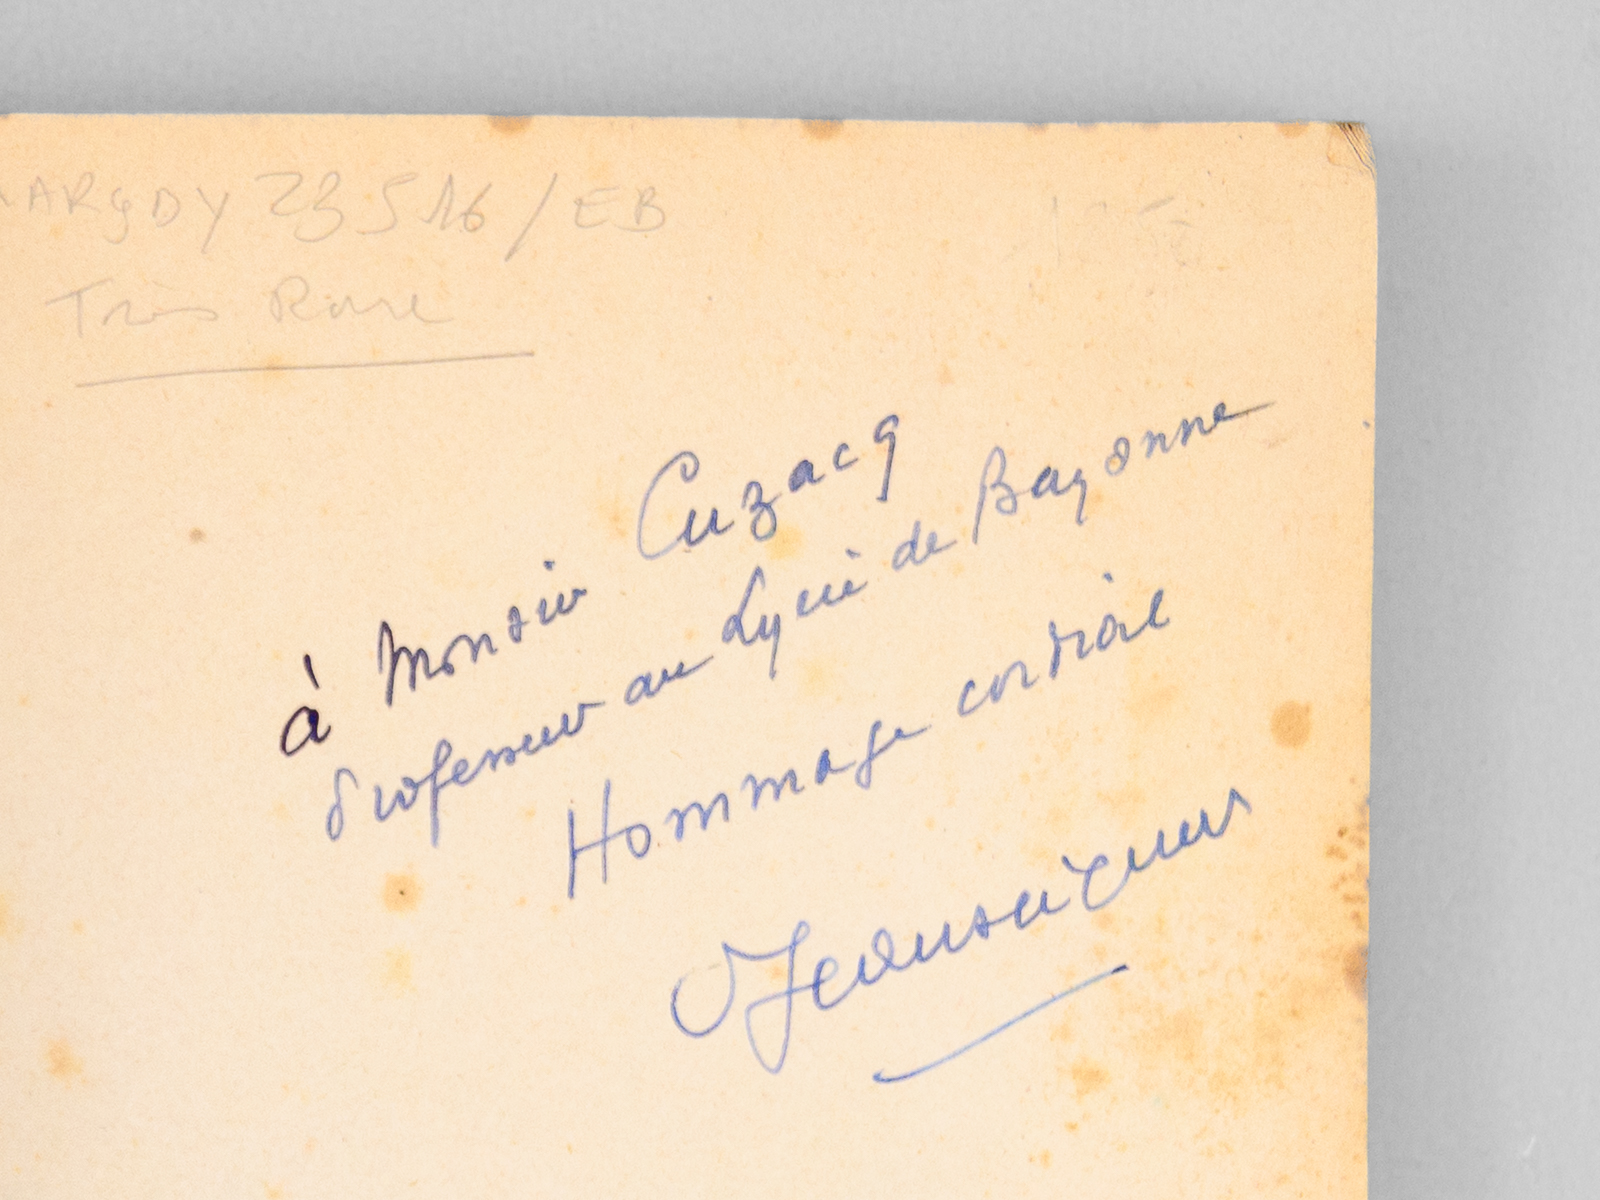 23516/EB
Très Rare
à Monsieur Cuzacq
Professeur au Lycée de Bayonne
Hommage cordial